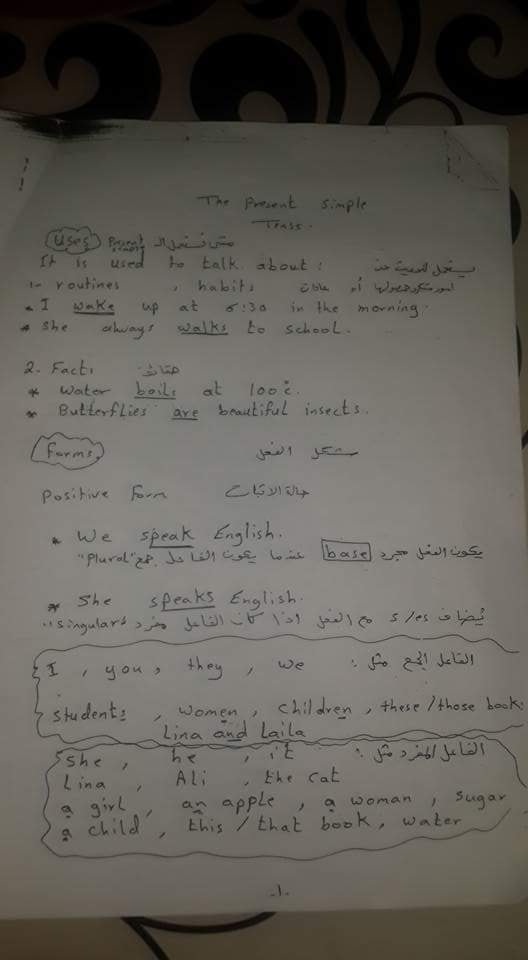 The Present Simple
Tense.
Uses Present متى نستعمل الـ
It is used to talk about : يستعمل للحديث عن
1- routines , habits أمور متكرر حصولها أو عادات
* I wake up at 6:30 in the morning.
* She always walks to school.
2. Facts حقائق
* Water boils at 100°c.
* Butterflies are beautiful insects.
Forms شكل الفعل
Positive Form حالة الاثبات
* We speak English.
يكون الفعل مجرد base عندما يكون الفاعل جمع "Plural"
* She speaks English.
يُضاف s/es مع الفعل اذا كان الفاعل مفرد "Singular"
I , you , they , we الفاعل الجمع مثل :
students , women , children , these / those books
Lina and Laila
She , he , it الفاعل المفرد مثل :
Lina , Ali , the cat
a girl , an apple , a woman , sugar
a child , this / that book , water
-1-